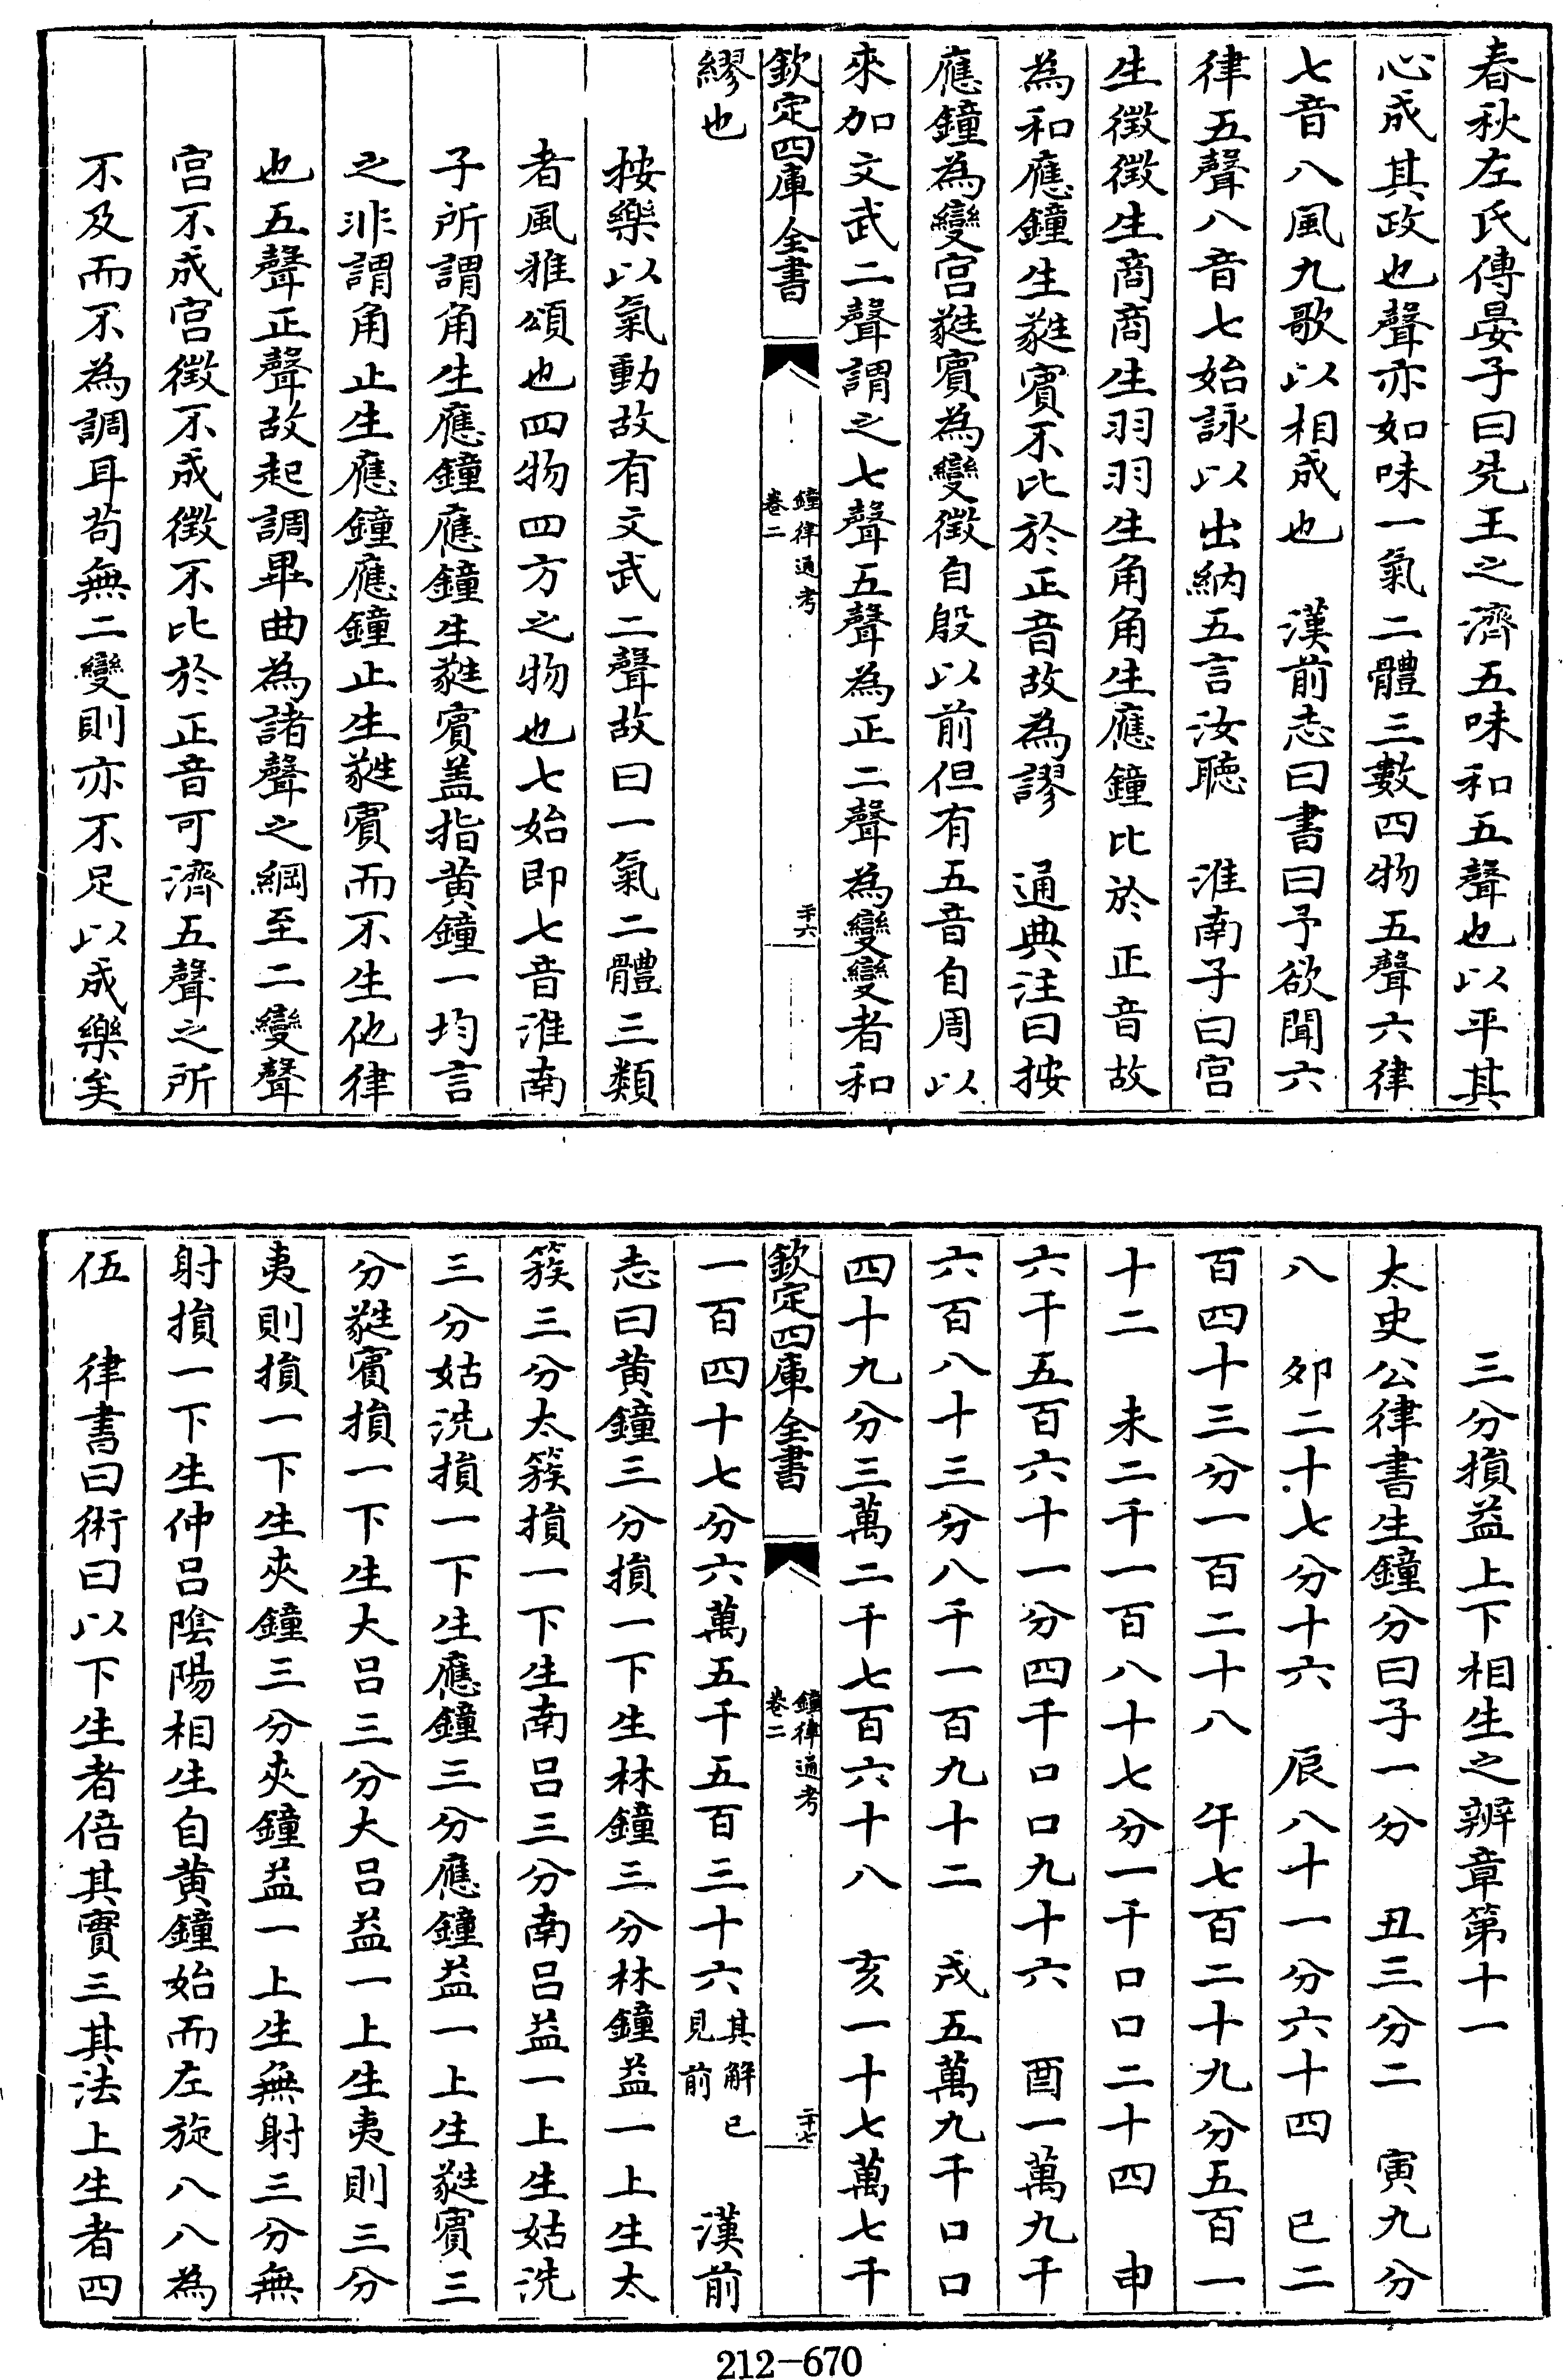 春秋左氏傳晏子曰先王之濟五味和五聲也以平其
心成其政也聲亦如味一氣二體三數四物五聲六律
七音八風九歌以相成也　漢前志曰書曰予欲聞六
律五聲八音七始詠以出納五言汝聽　淮南子曰宫
生徴徴生商商生羽羽生角角生應鐘比於正音故
為和應鐘生蕤賓不比於正音故為謬　通典注曰按
應鐘為變宫蕤賓為變徴自殷以前但有五音自周以
來加文武二聲謂之七聲五聲為正二聲為變變者和
欽定四庫全書
鐘律通考
卷二
二十六
繆也
按樂以氣動故有文武二聲故曰一氣二體三類
者風雅頌也四物四方之物也七始即七音淮南
子所謂角生應鐘應鐘生蕤賓盖指黄鐘一均言
之非謂角止生應鐘應鐘止生蕤賓而不生他律
也五聲正聲故起調畢曲為諸聲之綱至二變聲
宫不成宫徴不成徴不比於正音可濟五聲之所
不及而不為調耳苟無二變則亦不足以成樂矣
三分損益上下相生之辨章第十一
太史公律書生鐘分曰子一分　丑三分二　寅九分
八　夘二十七分十六　辰八十一分六十四　巳二
百四十三分一百二十八　午七百二十九分五百一
十二　未二千一百八十七分一千口口二十四　申
六千五百六十一分四千口口九十六　酉一萬九千
六百八十三分八千一百九十二　戌五萬九千口口
四十九分三萬二千七百六十八　亥一十七萬七千
欽定四庫全書
鐘律通考
卷二
二十七
一百四十七分六萬五千五百三十六其解已見前　漢前
志曰黄鐘三分損一下生林鐘三分林鐘益一上生太
簇三分太簇損一下生南吕三分南吕益一上生姑洗
三分姑洗損一下生應鐘三分應鐘益一上生蕤賓三
分蕤賓損一下生大吕三分大吕益一上生夷則三分
夷則損一下生夾鐘三分夾鐘益一上生無射三分無
射損一下生仲吕陰陽相生自黄鐘始而左旋八八為
伍　律書曰術曰以下生者倍其實三其法上生者四
212-670